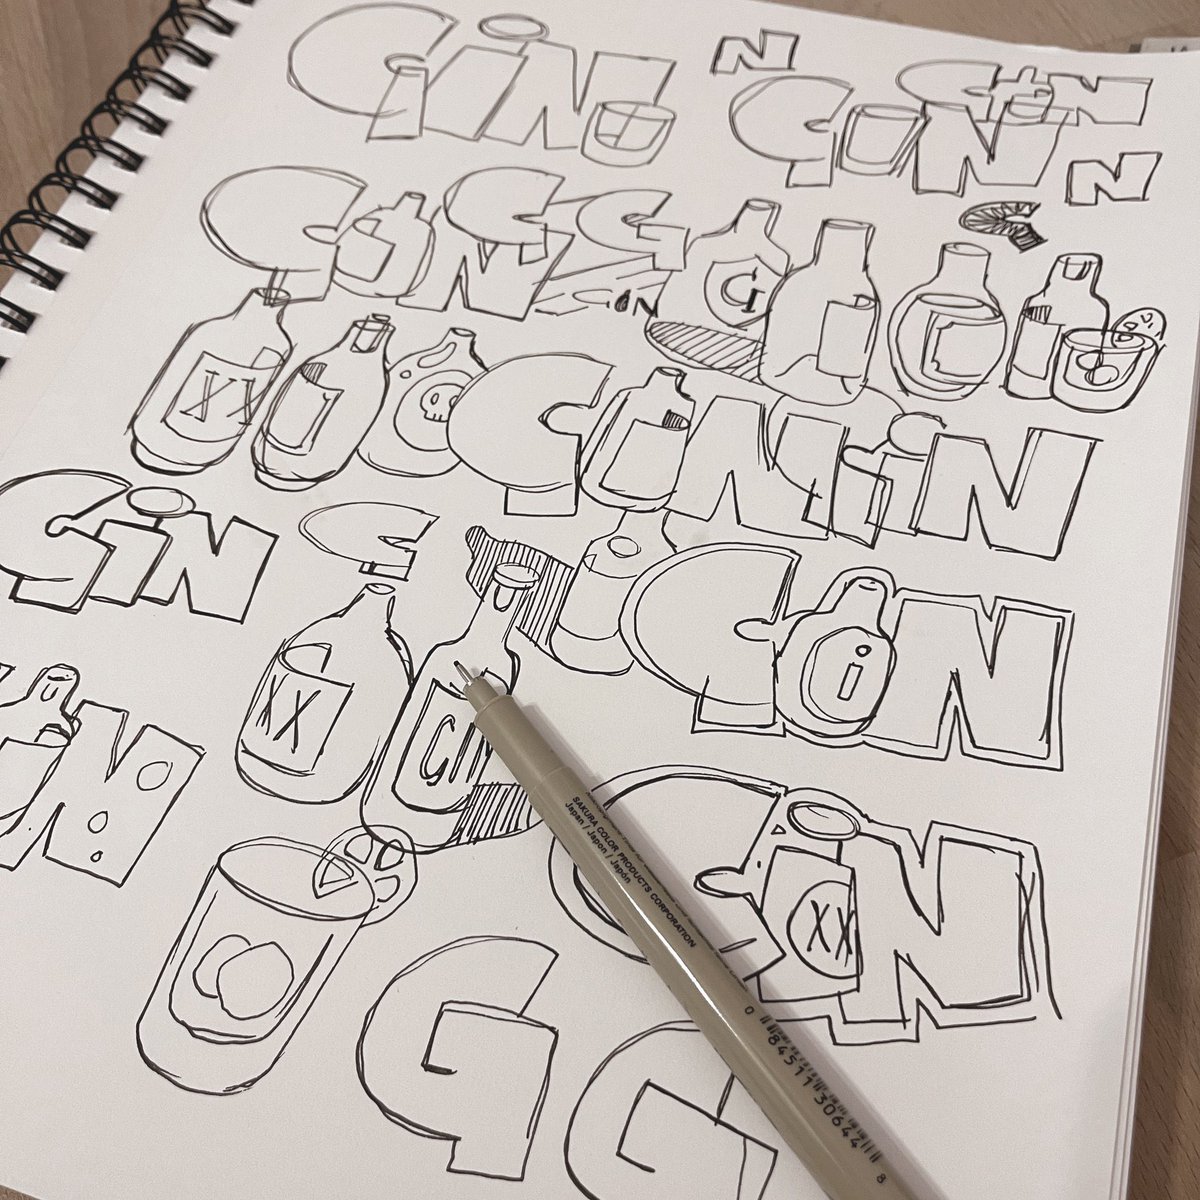 GiN
N
GIN
GIN
N
GIN
G
G
G
GIN
G
XX
GIN
N
iN
GiN
G
GiN
XX
GIN
N
XX
GiN
G
G
SAKURA COLOR PRODUCTS CORPORATION
Japan / Japon / Japón
0 84511 30644 8